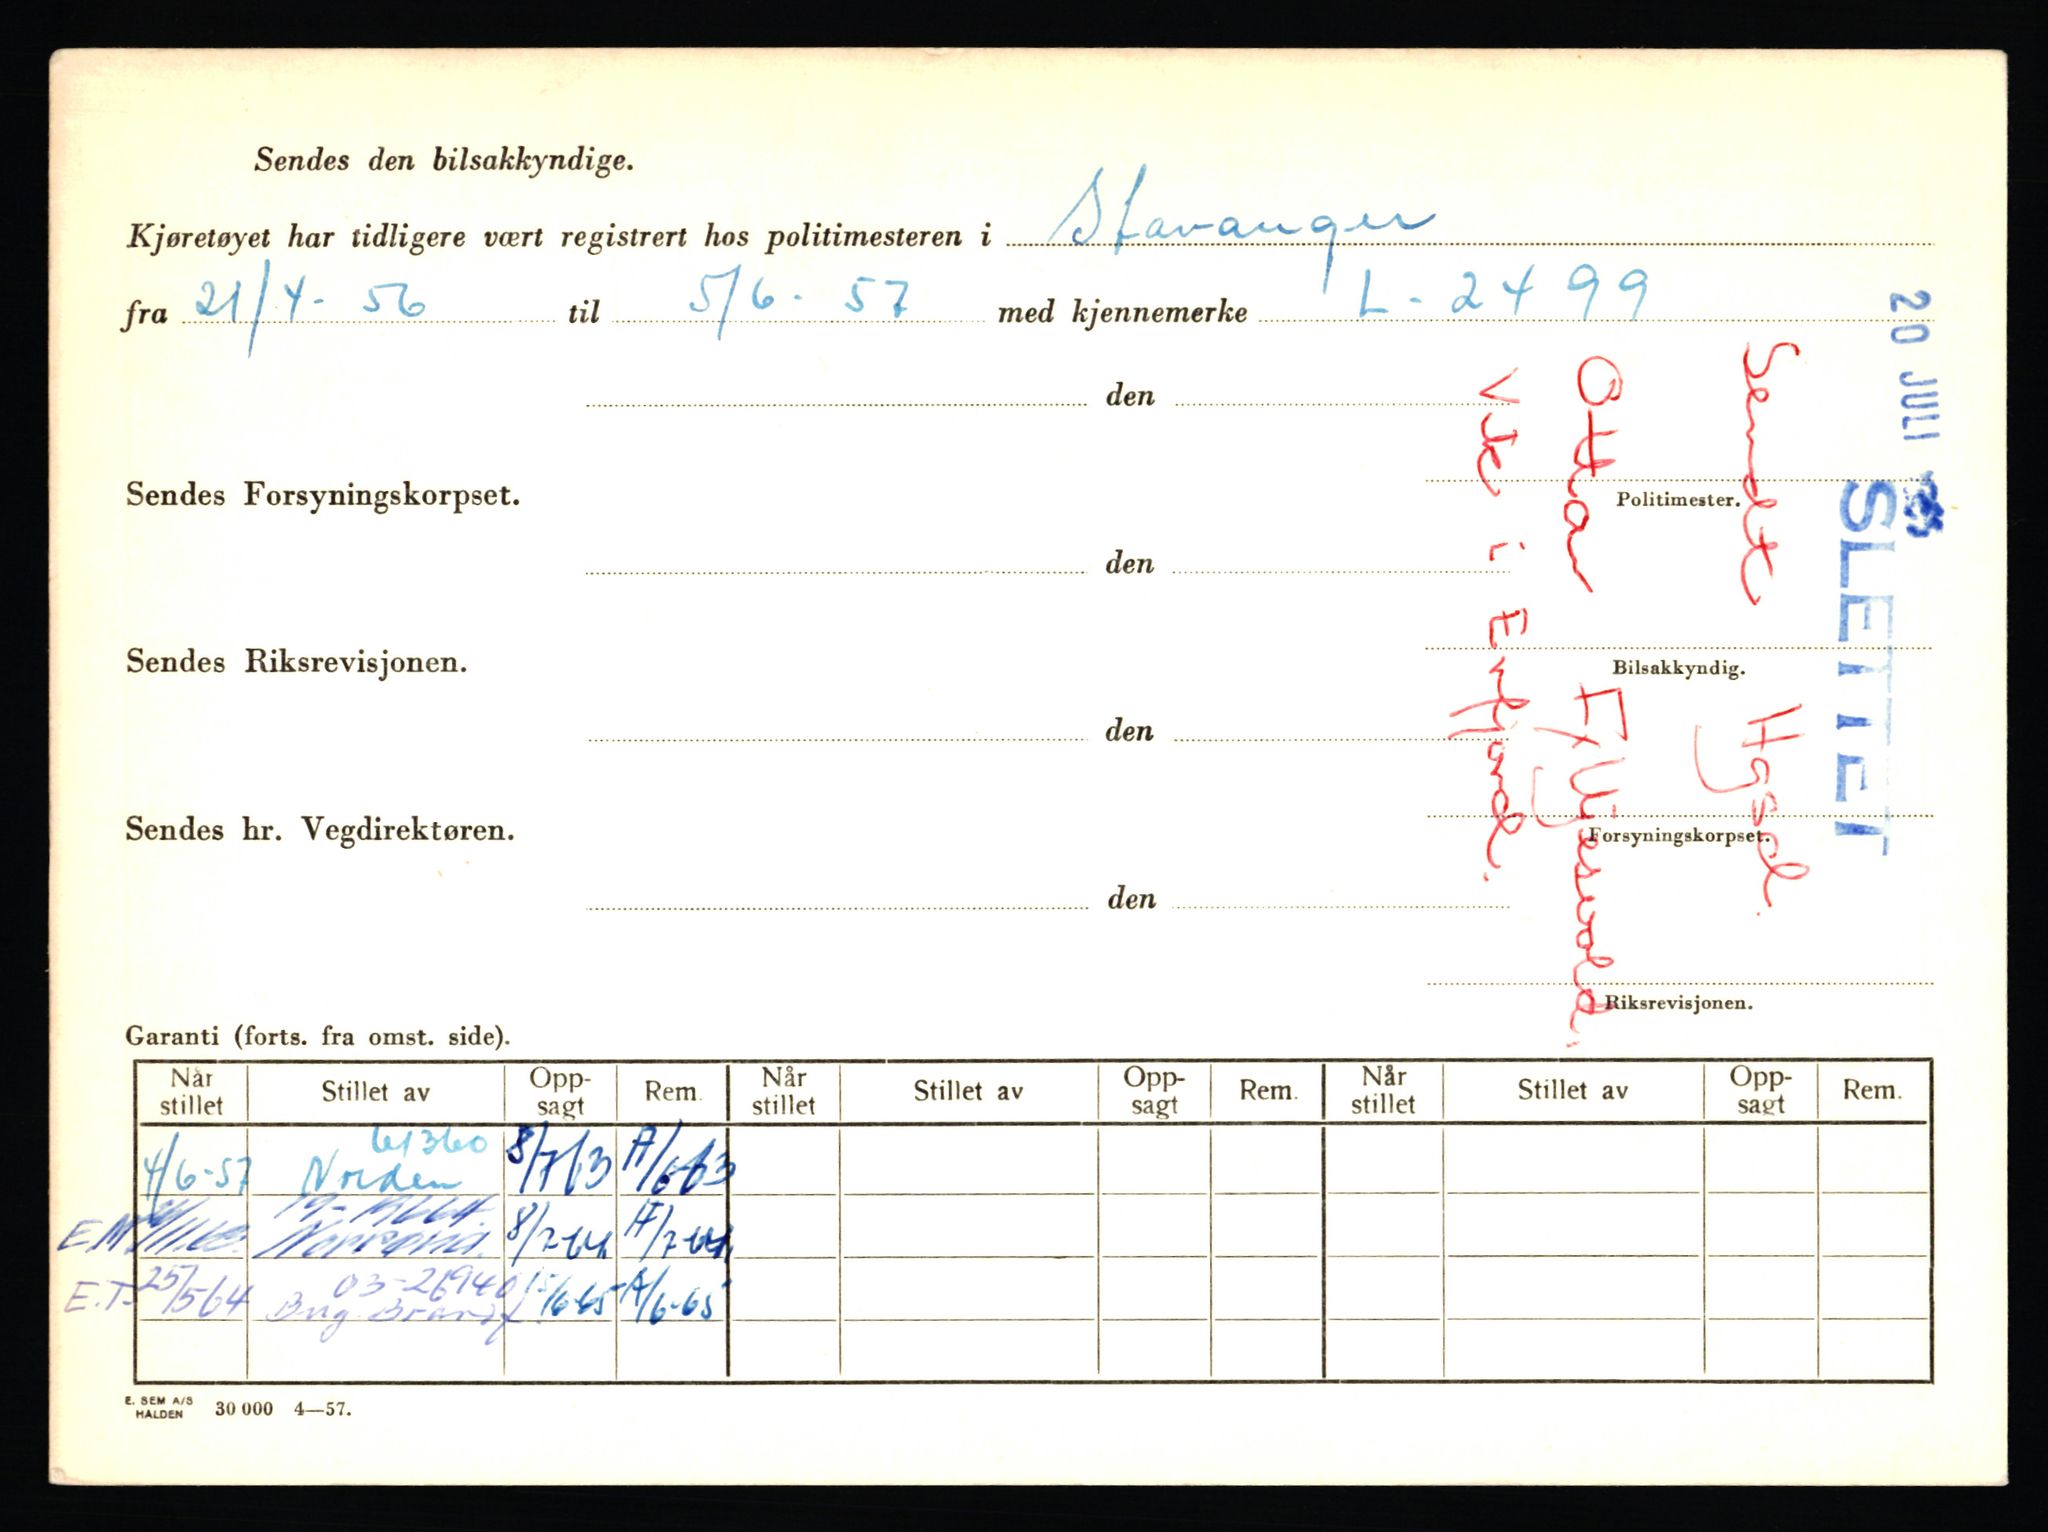 Sendes den bilsakkyndige.
Kjøretøyet har tidligere vært registrert hos politimesteren i Stavanger
fra 21/4-56 til 5/6-57 med kjennemerke L-2499
den
Politimester.
Sendes Forsyningskorpset.
den
Bilsakkyndig.
Sendes Riksrevisjonen.
den
Forsyningskorpset.
Sendes hr. Vegdirektøren.
den
Riksrevisjonen.
20 JULI
SLETTET
Sendt
Ottar
Vik i
Garanti (forts. fra omst. side).
Når stillet Stillet av Opp-sagt Rem. Når stillet Stillet av Opp-sagt Rem. Når stillet Stillet av Opp-sagt Rem.
61360
4/6-57 Norden 8/7/63 A/6-63
E.M. 8/7-64 A/7-64
03-26940
E.T. 25/5 64 Brand 15/6-65 A/6-65
E. SEM A/S
HALDEN 30 000 4—57.